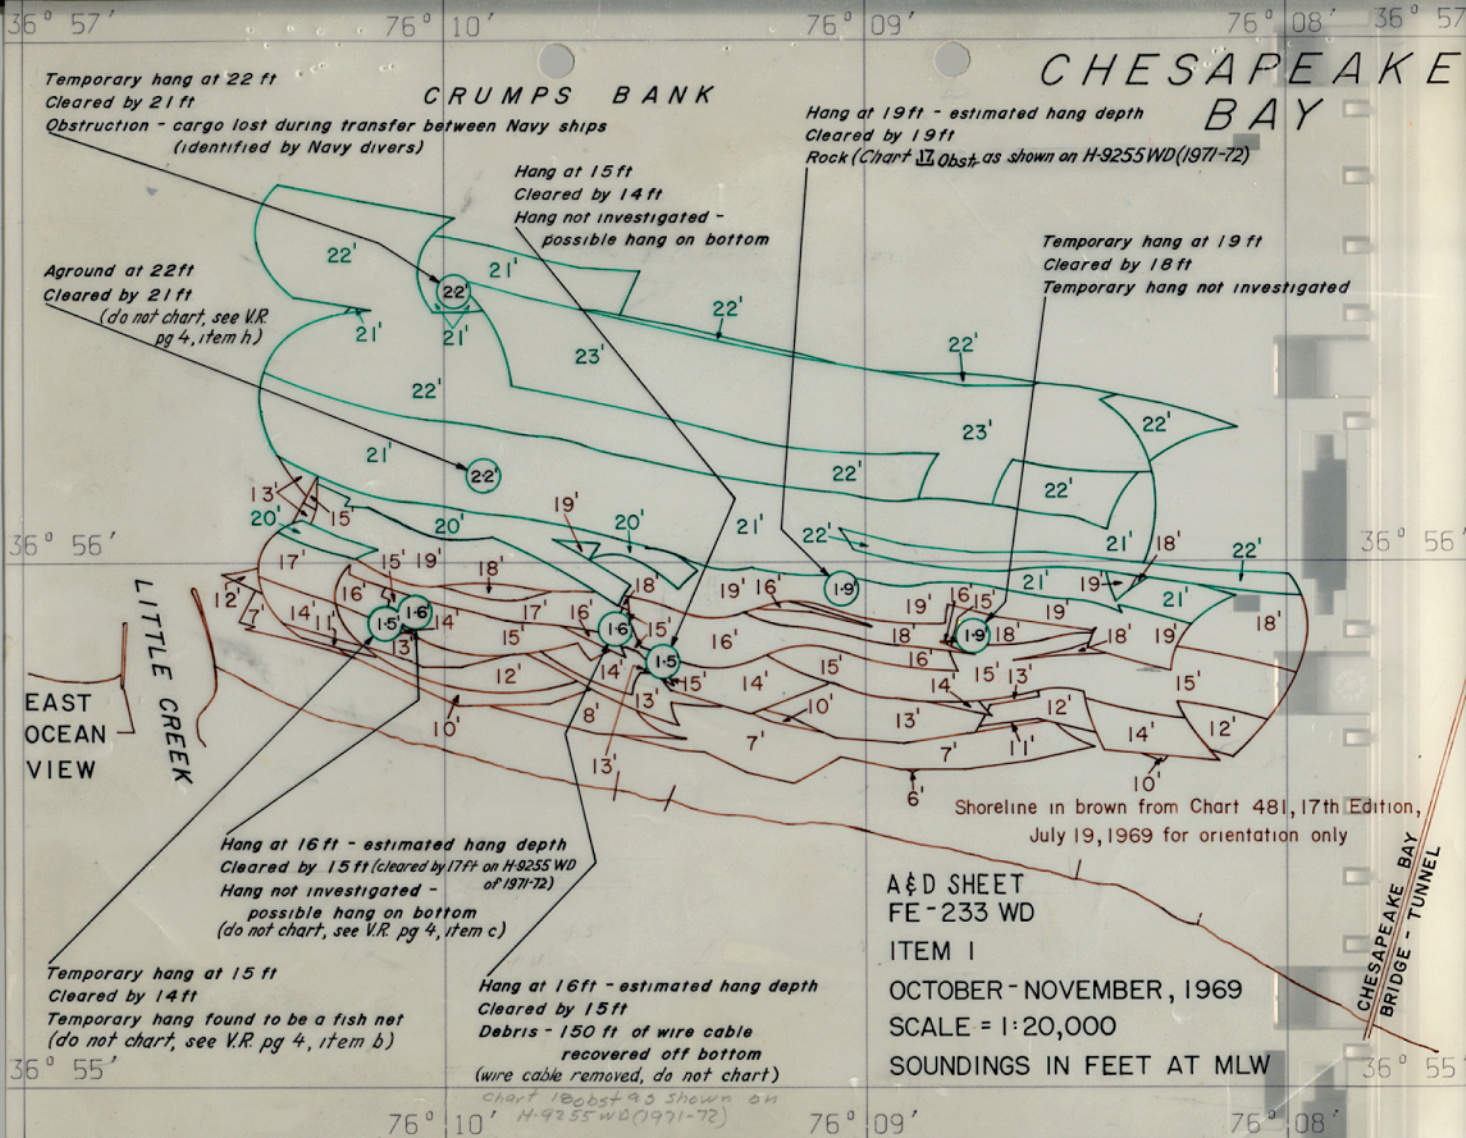 36° 57′
76° 10′
76° 09′
76° 08′
36° 57
CHESAPEAKE
BAY
CRUMPS BANK
Temporary hang at 22 ft
Cleared by 21 ft
Obstruction - cargo lost during transfer between Navy ships
(identified by Navy divers)
Hang at 19 ft - estimated hang depth
Cleared by 19 ft
Rock (Chart 17 Obstr as shown on H-9255 WD (1971-72)
Hang at 15 ft
Cleared by 14 ft
Hang not investigated -
possible hang on bottom
Temporary hang at 19 ft
Cleared by 18 ft
Temporary hang not investigated
Aground at 22 ft
Cleared by 21 ft
(do not chart, see V.R.
pg 4, item h)
22'
21'
22'
21'
21'
22'
23'
22'
22'
23'
22'
21'
22'
22'
22'
13'
15'
20'
20'
19'
20'
21'
22'
21'
18'
22'
36° 56′
36° 56′
17'
15'
19'
18'
16'
18'
19'
16'
19'
19'
16'
15'
21'
19'
21'
12'
7'
14'
11'
15'
16'
14'
13'
17'
16'
16'
15'
19'
18'
19'
18'
18'
19'
18'
15'
12'
14'
15'
15'
16'
14'
15'
16'
15'
13'
15'
10'
8'
13'
13'
7'
10'
13'
14'
12'
11'
7'
6'
14'
12'
10'
LITTLE CREEK
EAST
OCEAN
VIEW
Shoreline in brown from Chart 481, 17th Edition,
July 19, 1969 for orientation only
Hang at 16 ft - estimated hang depth
Cleared by 15 ft (cleared by 17ft on H-9255 WD
of 1971-72)
Hang not investigated -
possible hang on bottom
(do not chart, see V.R. pg 4, item c)
Temporary hang at 15 ft
Cleared by 14 ft
Temporary hang found to be a fish net
(do not chart, see V.R. pg 4, item b)
Hang at 16 ft - estimated hang depth
Cleared by 15 ft
Debris - 150 ft of wire cable
recovered off bottom
(wire cable removed, do not chart)
Chart 18 obst as shown on
H-9255 WD (1971-72)
A & D SHEET
FE - 233 WD
ITEM 1
OCTOBER - NOVEMBER, 1969
SCALE = 1:20,000
SOUNDINGS IN FEET AT MLW
CHESAPEAKE BAY
BRIDGE - TUNNEL
36° 55′
36° 55
76° 10′
76° 09′
76° 08′